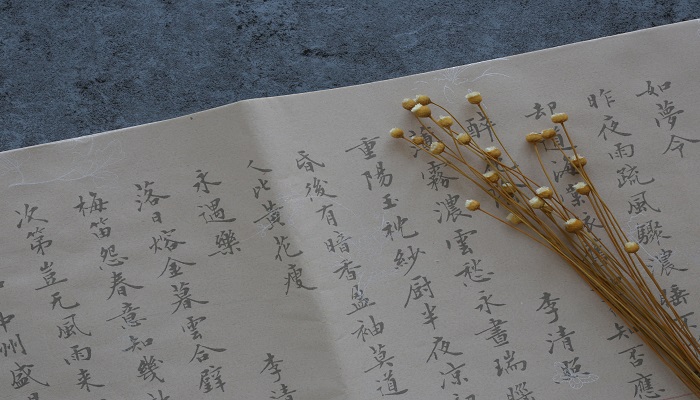 如夢令
昨夜雨疏風驟濃睡不
却道海棠知否應
醉李清照
薄霧濃雲愁永晝瑞腦
重陽玉枕紗厨半夜凉初
昏後有暗香盈袖莫道
人比黃花瘦
永遇樂 李清
落日熔金暮雲合璧
梅笛怨春意知幾
次第豈无風雨來
中州盛